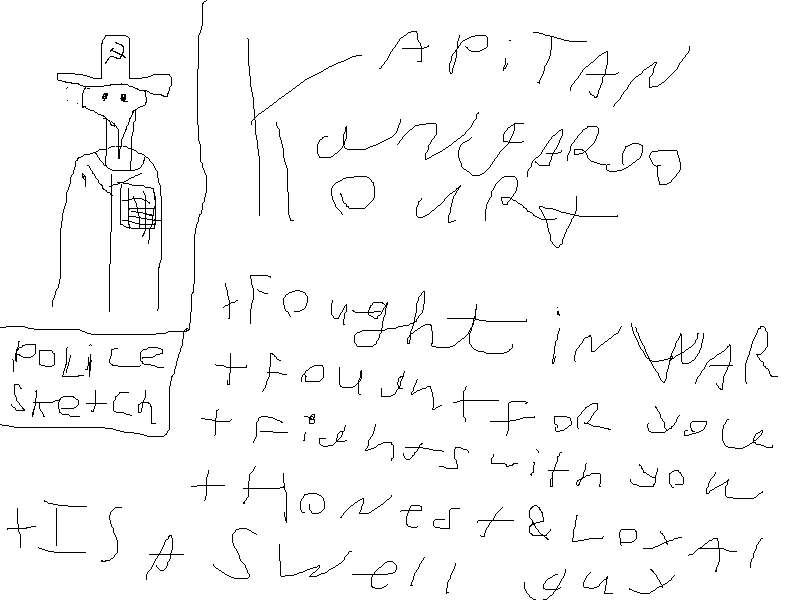 POLiCE
SketCh
KAPiTAN
aNGAROO
OuRT
+Fought iN WAR
+FOUGHT FOR YOU
+FiGhtS with you
+HONEST & LOYAl
+IS A SWell guy